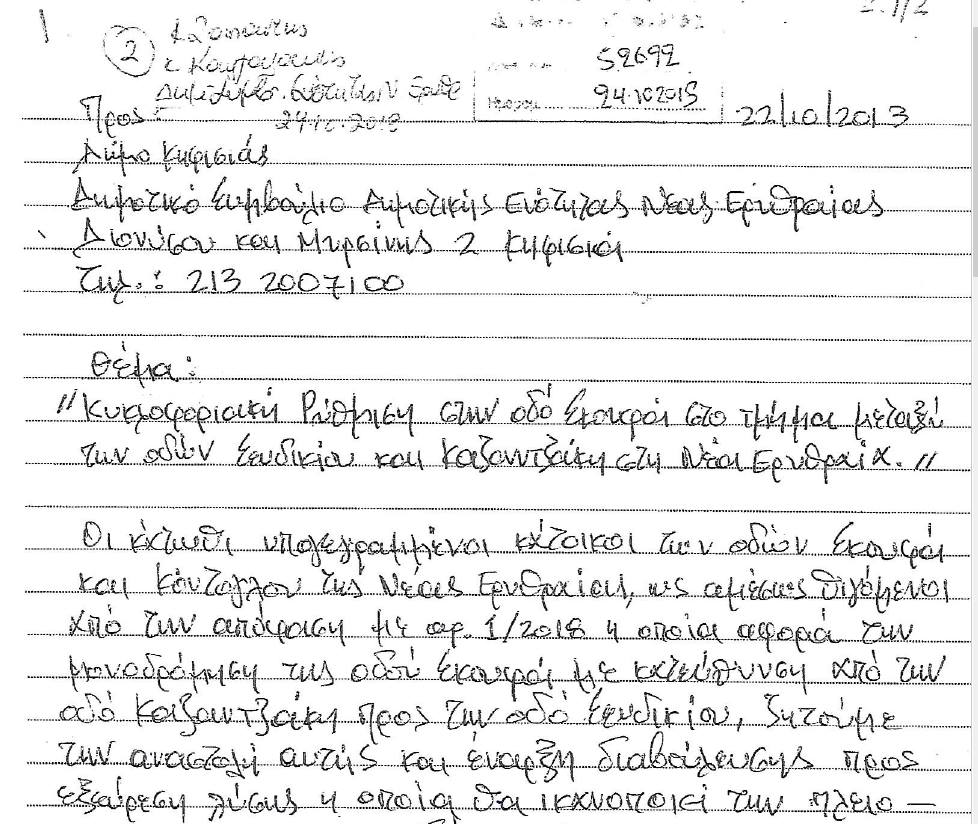 1
2
52692
24.10.2018
24.10.2018
Προς
22/10/2013
Δήμο Κηφισιάς
Δημοτικό Συμβούλιο Δημοτικής Ενότητας Νέας Ερυθραίας
Διονύσου και Μυρσίνης 2 Κηφισιά
Τηλ.: 213 2007100
Θέμα:
"Κυκλοφοριακή Ρύθμιση στην οδό Σκουφά στο τμήμα μεταξύ
των οδών Συνδικίου και Καζαντζάκη στη Νέα Ερυθραία."
Οι κάτωθι υπογεγραμμένοι κάτοικοι των οδών Σκουφά
και Κόντογλου της Νέας Ερυθραίας, ως αμέσως θιγόμενοι
από την απόφαση με αρ. 1/2018 η οποία αφορά την
μονοδρόμηση της οδού Σκουφά με κατεύθυνση από την
οδό Καζαντζάκη προς την οδό Συνδικίου, ζητούμε
την αναστολή αυτής και έναρξη διαβούλευσης προς
εξεύρεση λύσης η οποία θα ικανοποιεί την πλειο-